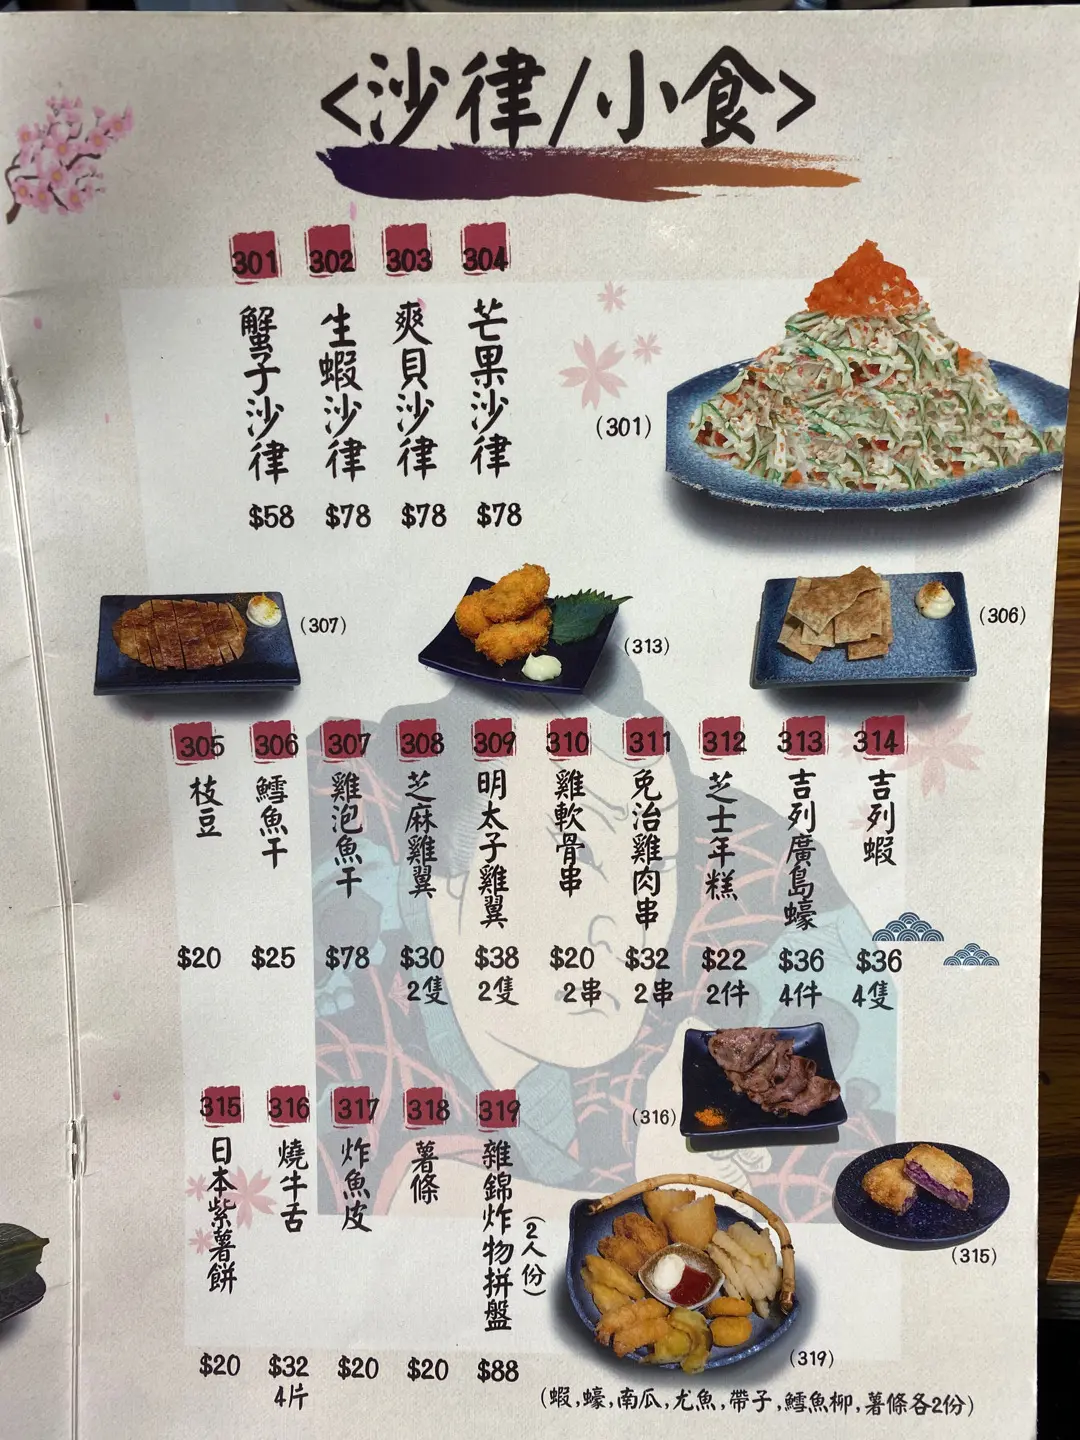 <沙律/小食>
301 302 303 304
蟹子沙律
生蝦沙律
爽貝沙律
芒果沙律
$58 $78 $78 $78
(301)
(307)
(313)
(306)
305 306 307 308 309 310 311 312 313 314
枝豆
鱈魚干
雞泡魚干
芝麻雞翼
明太子雞翼
雞軟骨串
免治雞肉串
芝士年糕
吉列廣島蠔
吉列蝦
$20 $25 $78 $30 $38 $20 $32 $22 $36 $36
2隻 2隻 2串 2串 2件 4件 4隻
315 316 317 318 319
日本紫薯餅
燒牛舌
炸魚皮
薯條
雜錦炸物拼盤
(2人份)
$20 $32 $20 $20 $88
4片
(316)
(315)
(319)
(蝦,蠔,南瓜,尤魚,帶子,鱈魚柳,薯條各2份)